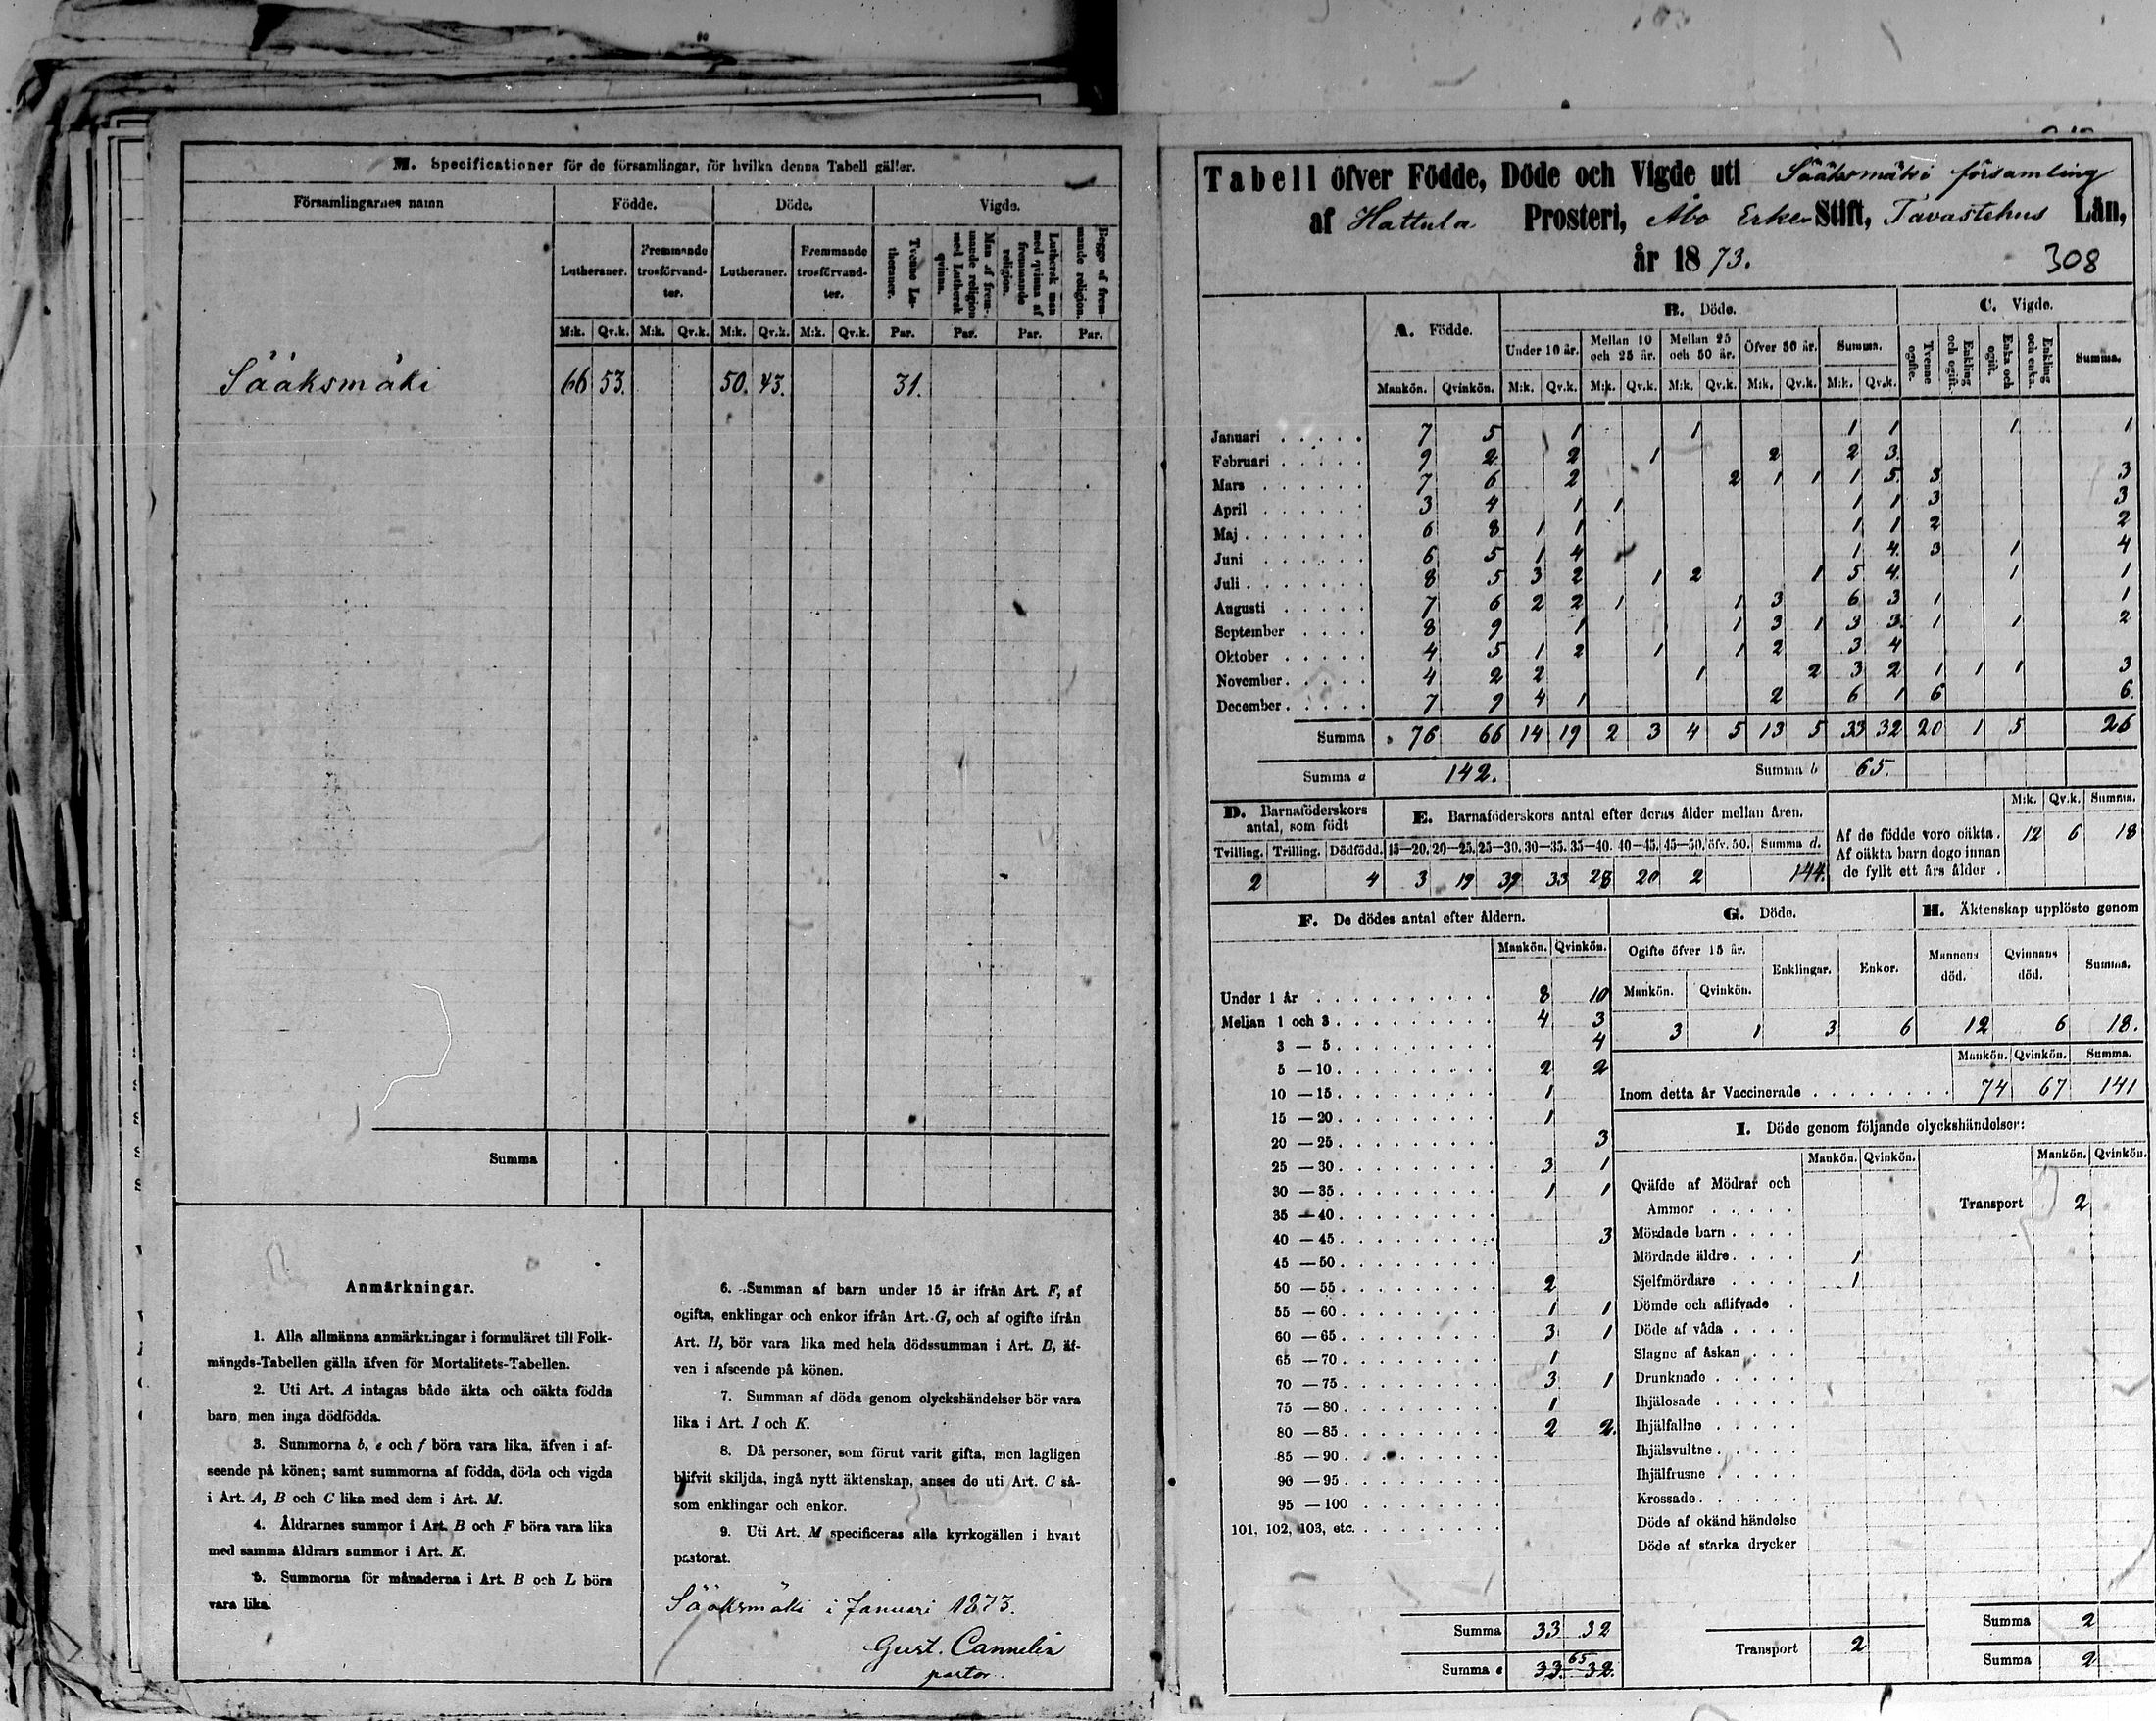 M. Specificationer för de församlingar, för hvilka denna Tabell gäller.
Församlingarnes namn Födde. Döde. Vigde.
Lutheraner. Fremmande trosförvandter. Lutheraner. Fremmande trosförvandter. Tvenne Lutheraner. Man af fremmande religion med Luthersk qvinna. Luthersk man med qvinna af fremmande religion. Begge af fremmande religion.
M:k. Qv.k. M:k. Qv.k. M:k. Qv.k. M:k. Qv.k. Par. Par. Par. Par.
Sääksmäki 66 53. 50. 43. 31.
Summa
Anmärkningar.
1. Alla allmänna anmärkningar i formuläret till Folk-
mängds-Tabellen gälla äfven för Mortalitets-Tabellen.
2. Uti Art. A intagas både äkta och oäkta födda
barn men inga dödfödda.
3. Summorna b, e och f böra vara lika, äfven i af-
seende på könen; samt summorna af födda, döda och vigda
i Art. A, B och C lika med dem i Art. M.
4. Åldrarnes summor i Art. B och F böra vara lika
med samma åldrars summor i Art. K.
5. Summorna för månaderna i Art. B och L böra
vara lika.
6. Summan af barn under 15 år ifrån Art. F, af
ogifta, enklingar och enkor ifrån Art. G, och af ogifte ifrån
Art. H, bör vara lika med hela dödssumman i Art. B, äf-
ven i afseende på könen.
7. Summan af döda genom olyckshändelser bör vara
lika i Art. I och K.
8. Då personer, som förut varit gifta, men lagligen
blifvit skiljda, ingå nytt äktenskap, anses de uti Art. C så-
som enklingar och enkor.
9. Uti Art. M specificeras alla kyrkogällen i hvart
pastorat.
Sääksmäki i Januari 1873.
Gust. Cannelin
pastor.
Tabell öfver Födde, Döde och Vigde uti Sääksmäki församling
af Hattula Prosteri, Åbo Erke Stift, Tavastehus Län,
år 1873.
308
A. Födde. B. Döde. C. Vigde.
Under 10 år. Mellan 10 och 25 år. Mellan 25 och 50 år. Öfver 50 år. Summa. Tvenne ogifte. Enkling och ogift. Enka och ogift. Enkling och enka. Summa.
Mankön. Qvinkön. M:k. Qv.k. M:k. Qv.k. M:k. Qv.k. M:k. Qv.k. M:k. Qv.k.
Januari 7 5 1 1 1 1 1 1
Februari 9 2 2 1 2 2 3.
Mars 7 6 2 2 1 1 1 5. 3 3
April 3 4 1 1 1 1 3 3
Maj 6 8 1 1 1 1 2 2
Juni 6 5 1 4 1 4. 3 1 4
Juli 8 5 3 2 1 2 1 5 4. 1 1
Augusti 7 6 2 2 1 1 3 6 3 1 1
September 8 9 1 1 3 1 3 3. 1 1 2
Oktober 4 5 1 2 1 1 2 3 4
November 4 2 2 1 2 3 2 1 1 1 3
December 7 9 4 1 2 6 1 6 6.
Summa 76 66 14 19 2 3 4 5 13 5 33 32 20 1 5 26
Summa a 142. Summa b 65.
D. Barnaföderskors antal, som födt
Tvilling. Trilling. Dödfödd.
2 4
E. Barnaföderskors antal efter deras ålder mellan åren.
15—20. 20—25. 25—30. 30—35. 35—40. 40—45. 45—50. öfv. 50. Summa d.
3 19 39 33 28 20 2 144.
M:k. Qv.k. Summa.
Af de födde voro oäkta. 12 6 18
Af oäkta barn dogo innan
de fyllt ett års ålder
F. De dödes antal efter åldern.
Mankön. Qvinkön.
Under 1 år 8 10
Mellan 1 och 3 4 3
3 — 5 4
5 — 10 2 2
10 — 15 1
15 — 20 1
20 — 25 3
25 — 30 3 1
30 — 35 1 1
35 — 40
40 — 45 3
45 — 50
50 — 55 2
55 — 60 1 1
60 — 65 3 1
65 — 70 1
70 — 75 3 1
75 — 80 1
80 — 85 2 2.
85 — 90
90 — 95
95 — 100
101, 102, 103, etc.
Summa 33 32
65
Summa e 33. 32.
G. Döde.
Ogifte öfver 15 år. Enklingar. Enkor.
Mankön. Qvinkön.
3 1 3 6
H. Äktenskap upplöste genom
Mannens död. Qvinnans död. Summa.
12 6 18.
Mankön. Qvinkön. Summa.
Inom detta år Vaccinerade 74 67 141
I. Döde genom följande olyckshändelser:
Mankön. Qvinkön. Mankön. Qvinkön.
Qväfde af Mödrar och
Ammor Transport 2
Mördade barn
Mördade äldre 1
Sjelfmördare 1
Dömde och aflifvade
Döde af våda
Slagne af åskan
Drunknade
Ihjälosade
Ihjälfallne
Ihjälsvultne
Ihjälfrusne
Krossade
Döde af okänd händelse
Döde af starka drycker
Transport 2
Summa 2
Summa 2